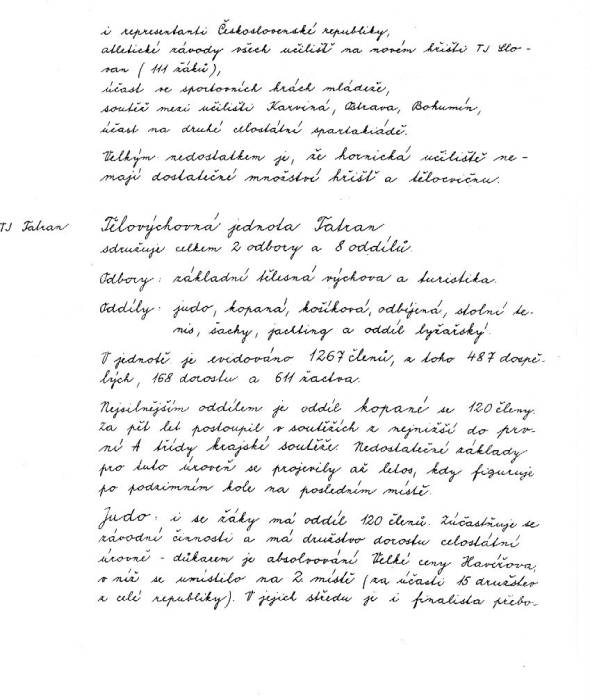 i representanti Československé republiky,
atletické závody všech učilišť na novém hřišti TJ Slo-
van (111 žáků),
účast ve sportovních hrách mládeže,
soutěž mezi učilišti Karviná, Ostrava, Bohumín,
účast na druhé celostátní spartakiádě.
Velkým nedostatkem je, že hornická učiliště ne-
mají dostatečné množství hřišť a tělocvičnu.
TJ Tatran
Tělovýchovná jednota Tatran
sdružuje celkem 2 odbory a 8 oddílů.
Odbory: základní tělesná výchova a turistika.
Oddíly: judo, kopaná, košíková, odbíjená, stolní te-
nis, šachy, jachting a oddíl lyžařský.
V jednotě je evidováno 1267 členů, z toho 487 dospě-
lých, 168 dorostu a 611 žactva.
Nejsilnějším oddílem je oddíl kopané se 120 členy.
Za pět let postoupil v soutěžích z nejnižší do prv-
ní A třídy krajské soutěže. Nedostatečné základy
pro tuto úroveň se projevily až letos, kdy figuruje
po podzimním kole na posledním místě.
Judo: i se žáky má oddíl 120 členů. Zúčastňuje se
závodní činnosti a má družstvo dorostu celostátní
úrovně - důkazem je absolvování Velké ceny Havířova,
v níž se umístilo na 2. místě (za účasti 15 družstev
z celé republiky). V jejich středu je i finalista přebo-